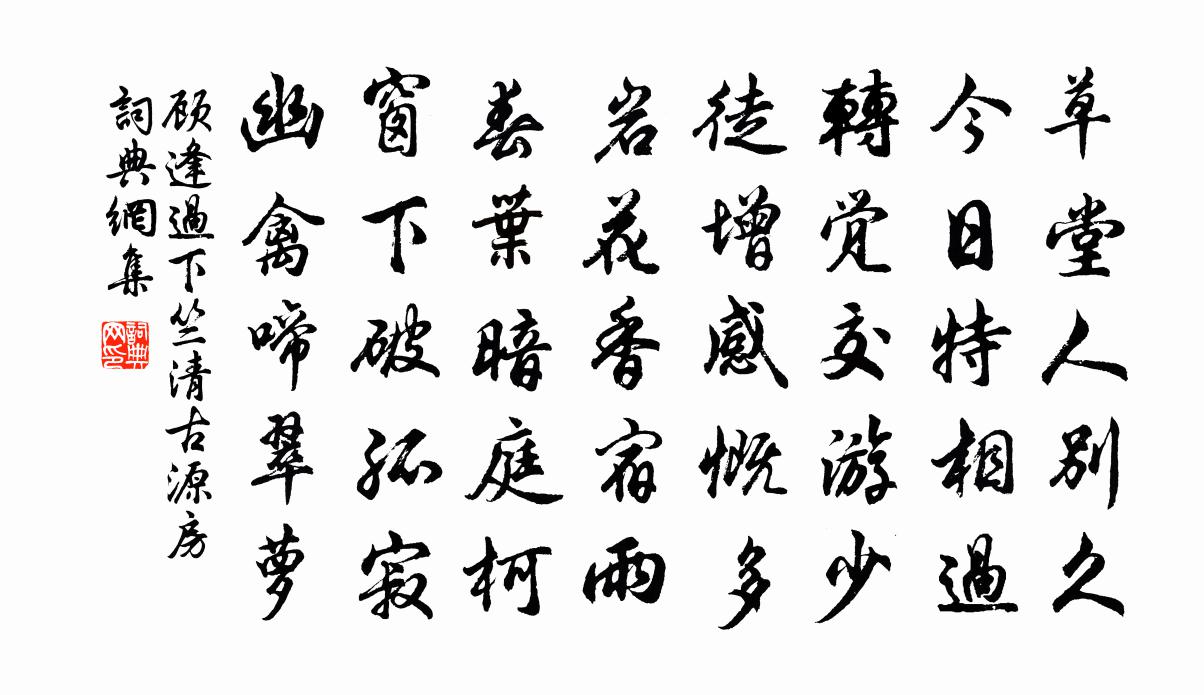 草堂人別久
今日特相過
轉覺交游少
徒增感慨多
岩花香宿雨
春葉暗庭柯
窗下破孤寂
幽禽啼翠萝
顾逢過下竺清古源房
詞典網集
詞典网印